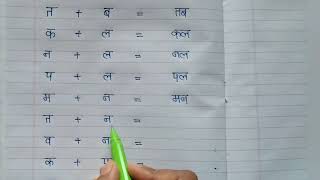 त + ब = तब
क + ल = कल
न + ल = नल
प + ल = पल
म + न = मन
त + न =
व + न =
क +   =